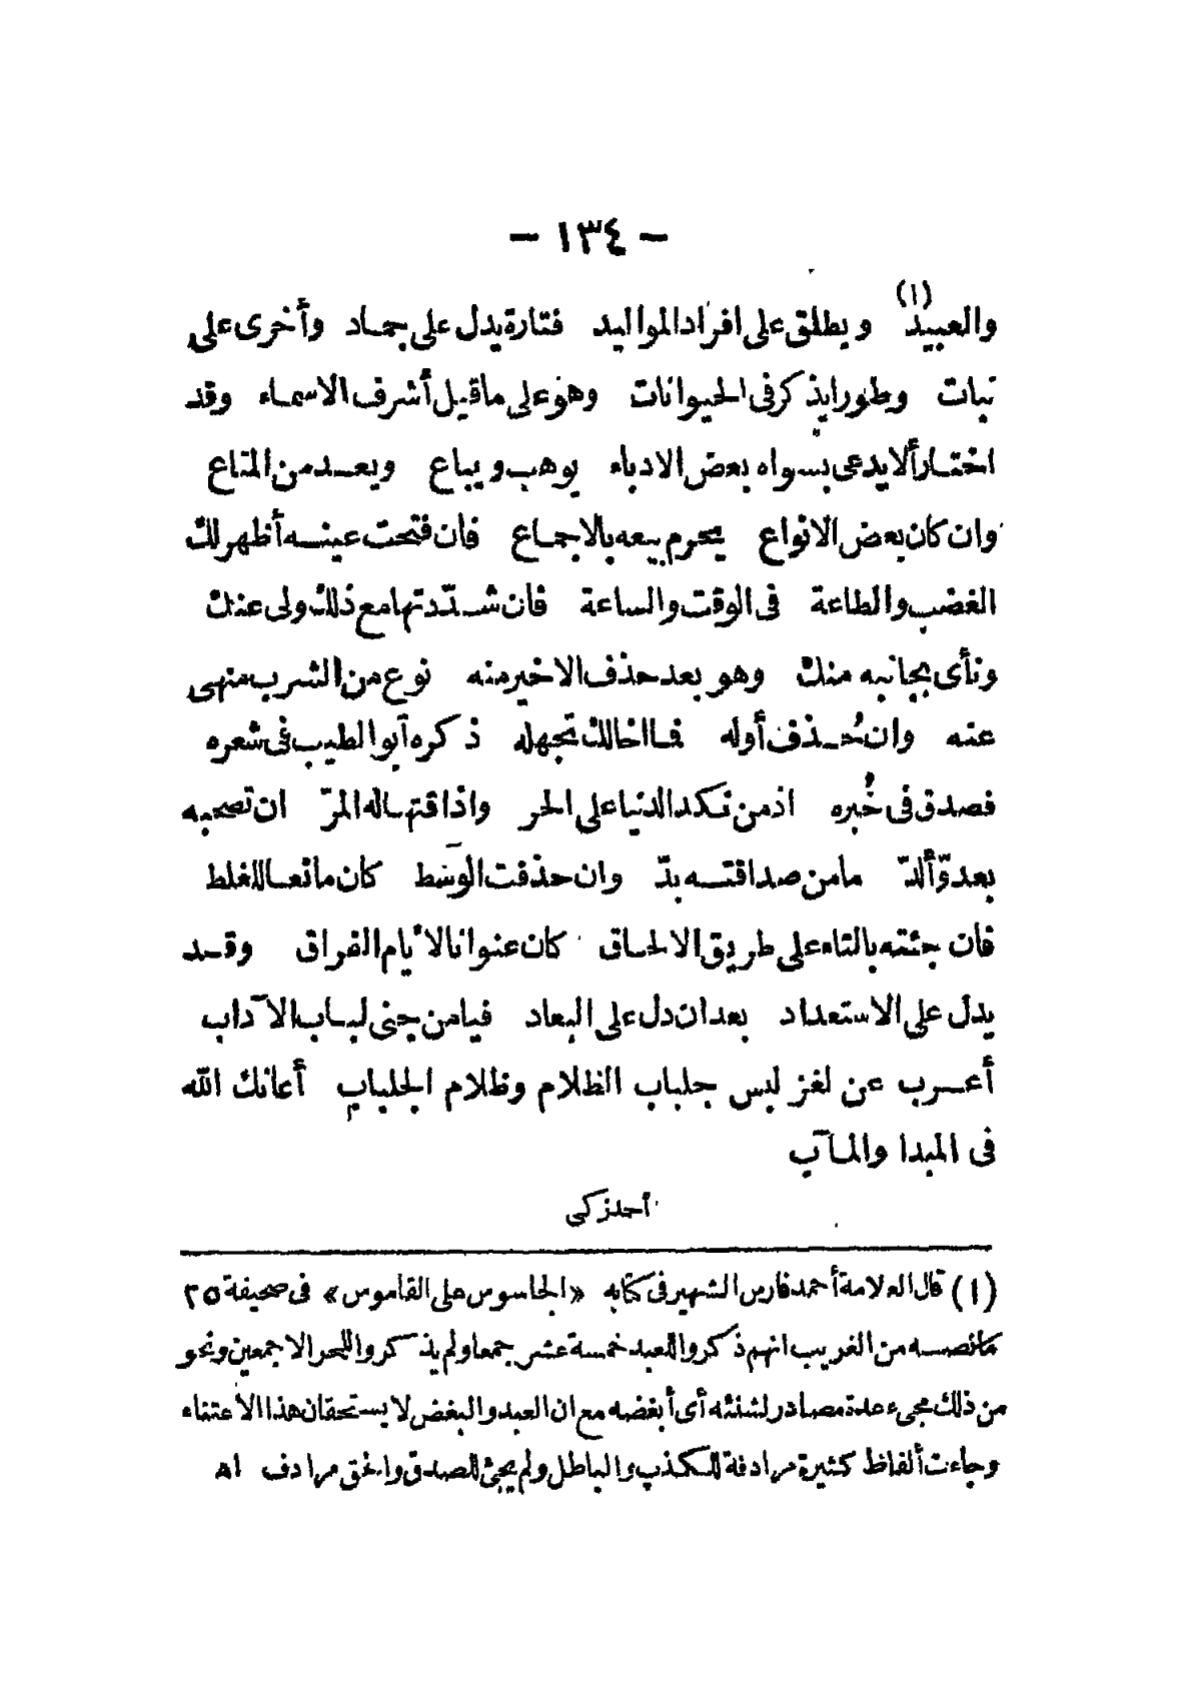 — ١٣٤ —
والعبيد (١) ويطلق على افراد المواليد فتارة يدل على جماد وأخرى على
نبات وطورا يذكر فى الحيوانات وهو على ما قيل أشرف الاسماء وقد
اختار ألا يدعى بسواه بعض الادباء يوهب ويباع ويعد من المتاع
وان كان بعض الانواع يحرم بيعه بالاجماع فان فتحت عينه أظهر لك
الغضب والطاعة فى الوقت والساعة فان شدّدتها مع ذلك ولى عنك
ونأى بجانبه منك وهو بعد حذف الاخير منه نوع من الشرب منهى
عنه وان تُحذف أوله فما اخالك تجهله ذكره أبو الطيب فى شعره
فصدق فى خُبره اذ من نكد الدنيا على الحر واذاقتها له المرّ ان تصحبه
بعدوّ ألدّ ما من صداقته بدّ وان حذفت الوسَط كان مانعا للغلط
فان جئته بالتاء على طريق الالحاق كان عنوانا لأيام الفراق وقد
يدل على الاستعداد بعد ان دل على البعاد فيا من جنى لباب الآداب
أعرب عن لغز لبس جلباب الظلام وظلام الجلباب أعانك الله
فى المبدا والمآب
أحمد زكى
(١) قال العلامة أحمد فارس الشهير فى كتابه «الجاسوس على القاموس» فى صحيفة ٢٥
مانصه من الغريب انهم ذكروا للعبد خمسة عشر جمعا ولم يذكروا للحر الا جمعين ونحو
من ذلك مجىء عدة مصادر لشنئه أى أبغضه مع ان العبد والبغض لا يستحقان هذا الاعتناء
وجاءت ألفاظ كثيرة مرادفة للكذب والباطل ولم يجئ للصدق والحق مرادف اه